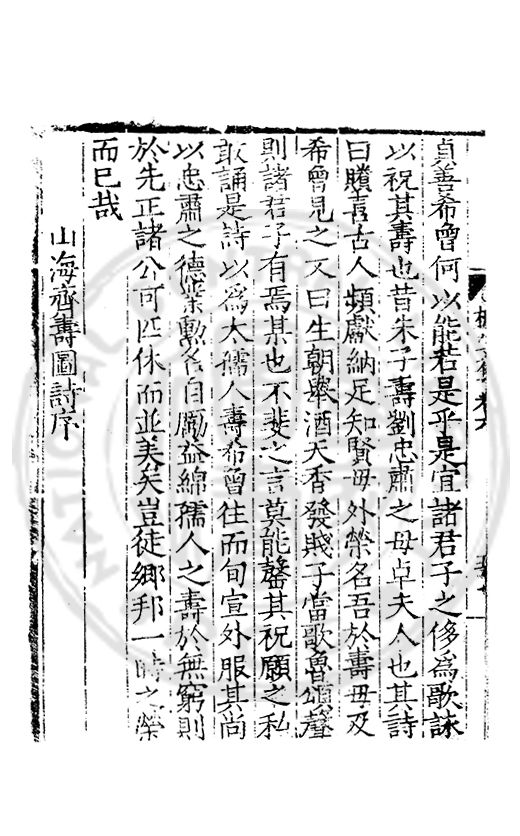 貞善希曾何以能若是乎是宜諸君子之侈為歌詠
以祝其壽也昔朱子壽劉忠肅之母卓夫人也其詩
曰賸喜古人頻獻納足知賢母外榮名吾於壽母及
希曾見之又曰生朝舉酒天香發賤子當歌魯頌聲
則諸君子有焉某也不斐之言莫能罄其祝願之私
敢誦是詩以為太孺人壽希曾往而旬宣外服其尚
以忠肅之德業勳名自勵益綿孺人之壽於無窮則
於先正諸公可匹休而並美矣豈徒鄉邦一時之榮
而已哉
山海齊壽圖詩序